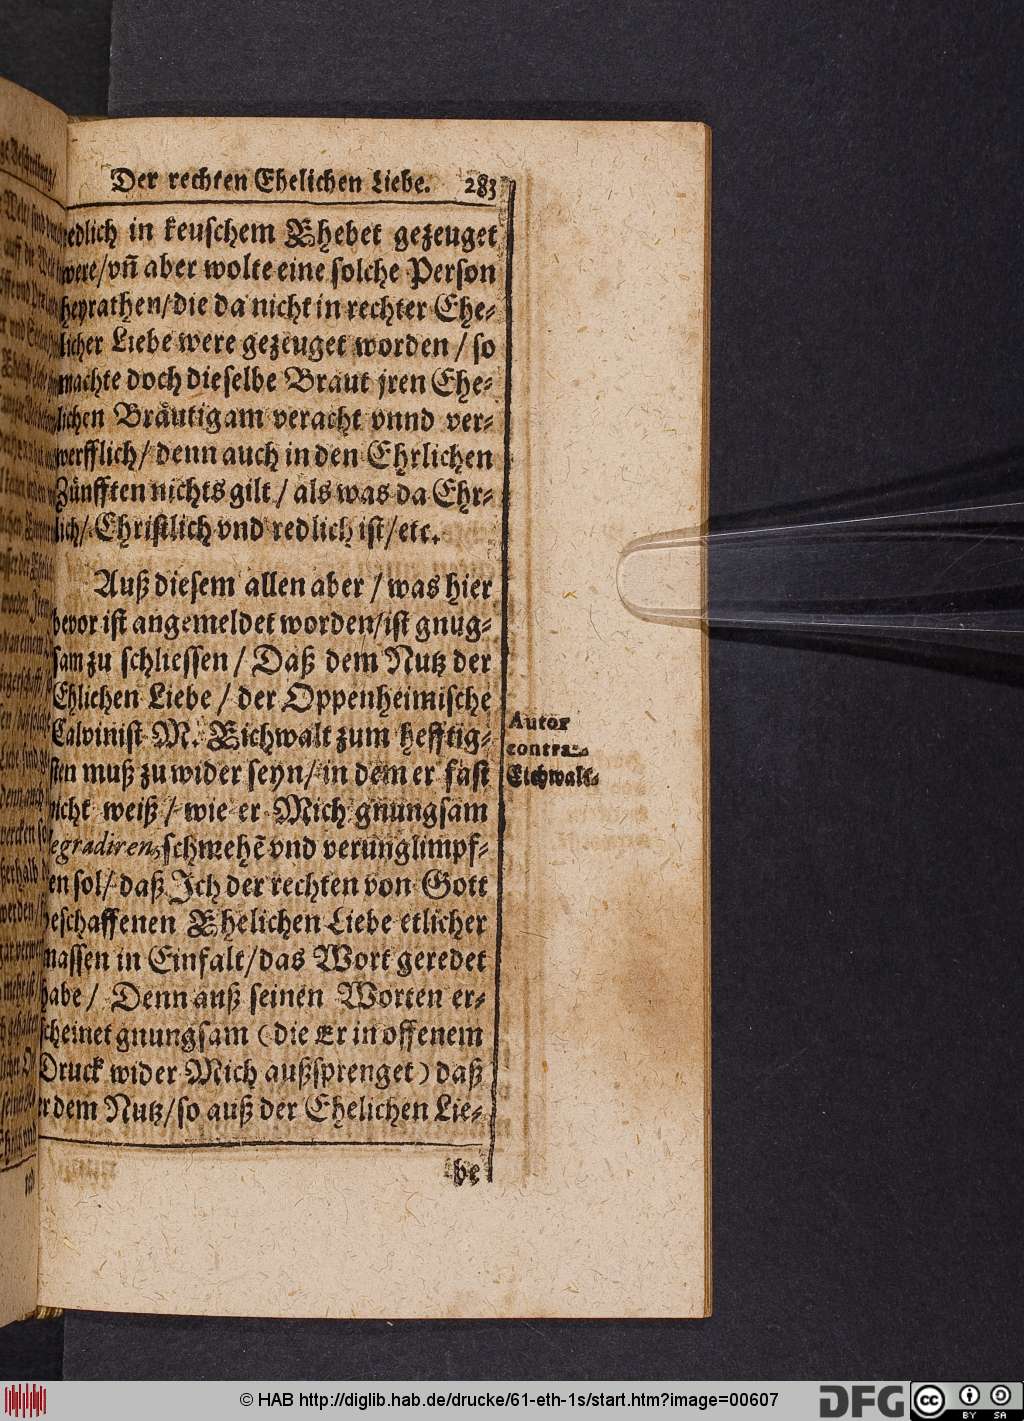 Der rechten Ehelichen Liebe. 283
redlich in keuschem Ehebet gezeuget
were/vn̄ aber wolte eine solche Person
heyrathen/die da nicht in rechter Ehe⸗
licher Liebe were gezeuget worden / so
machte doch dieselbe Braut jren Ehe⸗
lichen Bräutigam veracht vnnd ver⸗
werfflich/ denn auch in den Ehrlichen
Zünfften nichts gilt / als was da Ehr⸗
lich/ Christlich vnd redlich ist/etc.
Auß diesem allen aber / was hier
bevor ist angemeldet worden/ist gnug⸗
sam zu schliessen / Daß dem Nutz der
Ehlichen Liebe / der Oppenheimische
Calvinist M. Eichwalt zum hefftig⸗
sten muß zu wider seyn/ in dem er fast
nicht weiß / wie er Mich gnungsam
degradiren, schmehē vnd verunglimpf⸗
en sol/ daß Ich der rechten von Gott
geschaffenen Ehelichen Liebe etlicher
massen in Einfalt/das Wort geredet
habe / Denn auß seinen Worten er⸗
scheinet gnungsam (die Er in offenem
Druck wider Mich außsprenget) daß
er dem Nutz/so auß der Ehelichen Lie⸗
be
Autor
contra
Eichwalt⸗
© HAB http://diglib.hab.de/drucke/61-eth-1s/start.htm?image=00607
DFG
cc
BY SA